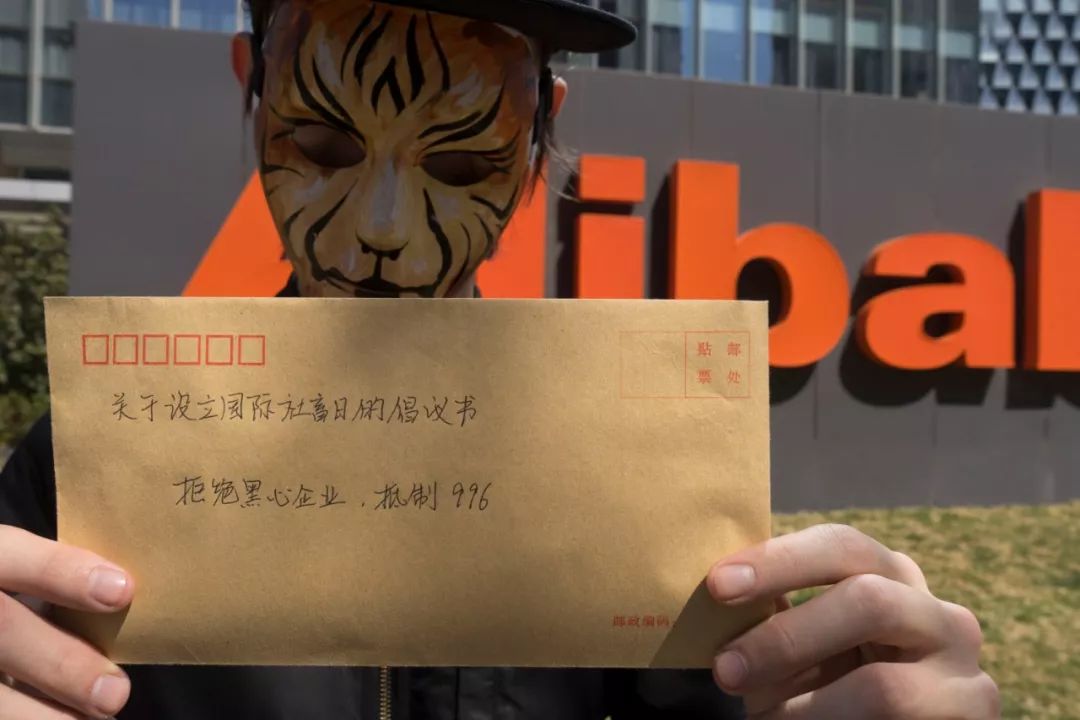 Alibab
贴 邮
票 处
关于设立国际社畜日的倡议书
拒绝黑心企业，抵制996
邮政编码：